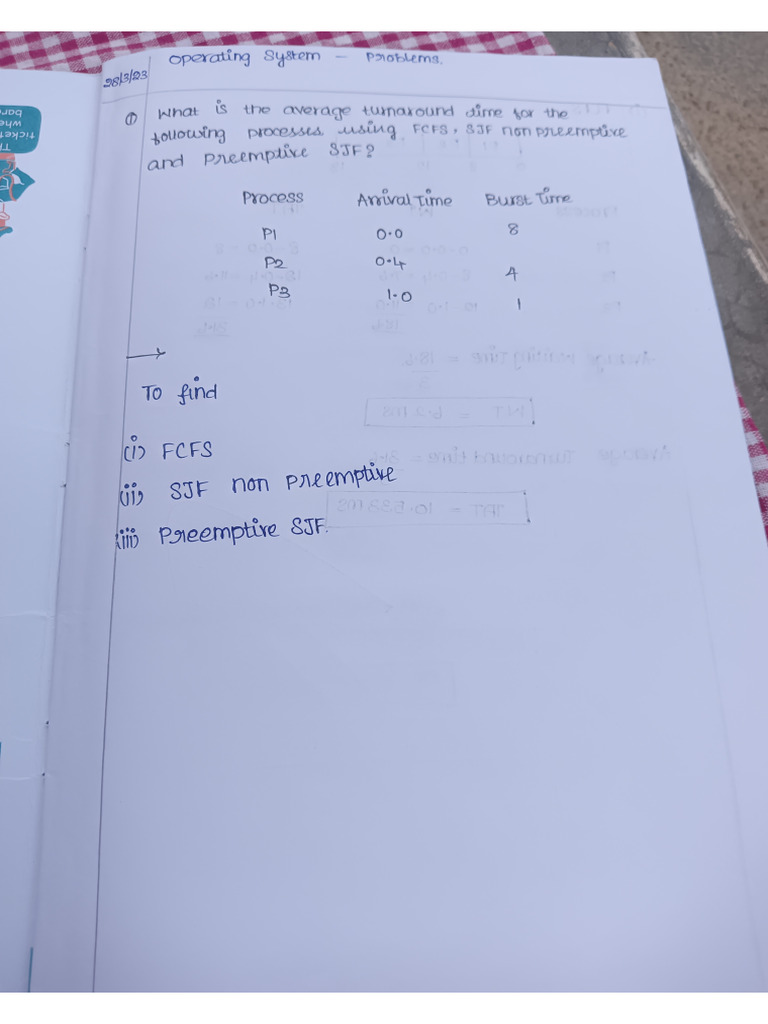 Operating System — Problems.
28/3/23
① What is the average turnaround dime for the
following processes using FCFS, SJF non preemptive
and Preemptive SJF?
Process Arrival Time Burst Time
P1 0.0 8
P2 0.4 4
P3 1.0 1
→
To find
(i) FCFS
(ii) SJF non preemptive
(iii) Preemptive SJF.